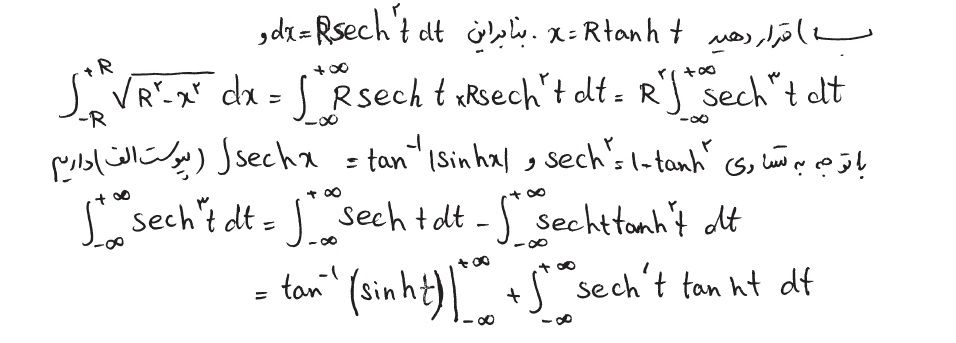 ب) قرار دهید x = R tanh t . بنابراین dx = R sech^۲ t dt و
∫_{-R}^{+R} √(R^۲ - x^۲) dx = ∫_{-∞}^{+∞} R sech t × R sech^۲ t dt = R^۲ ∫_{-∞}^{+∞} sech^۳ t dt
با توجه به تساوی sech^۲ = ۱ - tanh^۲ و ∫ sech x = tan^{-1} |sinh x| (پیوست الف) داریم
∫_{-∞}^{+∞} sech^۳ t dt = ∫_{-∞}^{+∞} sech t dt - ∫_{-∞}^{+∞} sech t tanh^۲ t dt
= tan^{-1} (sinh t) |_{-∞}^{+∞} + ∫_{-∞}^{+∞} sech' t tanh t dt